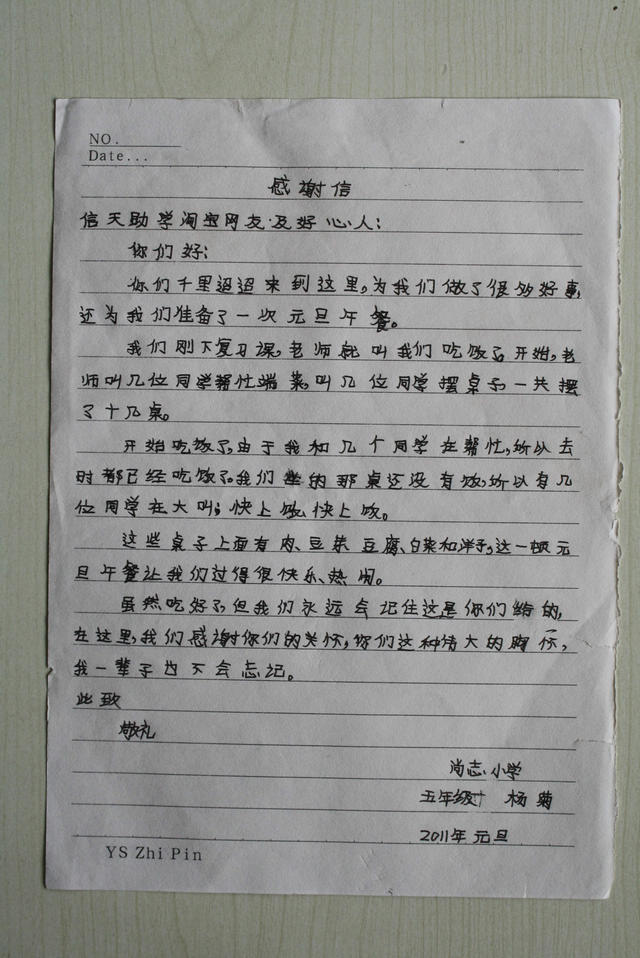 NO.
Date...
感谢信
信天助学淘宝网友及好心人:
你们好:
你们千里迢迢来到这里,为我们做了很多好事,
还为我们准备了一次元旦午餐。
我们刚下复习课,老师就叫我们吃饭了。开始,老
师叫几位同学帮忙端菜,叫几位同学摆桌子,一共摆
了十几桌。
开始吃饭了,由于我和几个同学在帮忙,所以去
时都已经吃饭了。我们坐的那桌还没有饭,所以有几
位同学在大叫;快上饭,快上饭。
这些桌子上面有肉、豆芽、豆腐、白菜和洋芋,这一顿元
旦午餐让我们过得很快乐、热闹。
虽然吃好了,但我们永远会记住这是你们给的,
在这里,我们感谢你们的关怀,你们这种伟大的胸怀,
我一辈子也不会忘记。
此致
敬礼
尚志小学
五年级 杨菊
2011年元旦
YS Zhi Pin